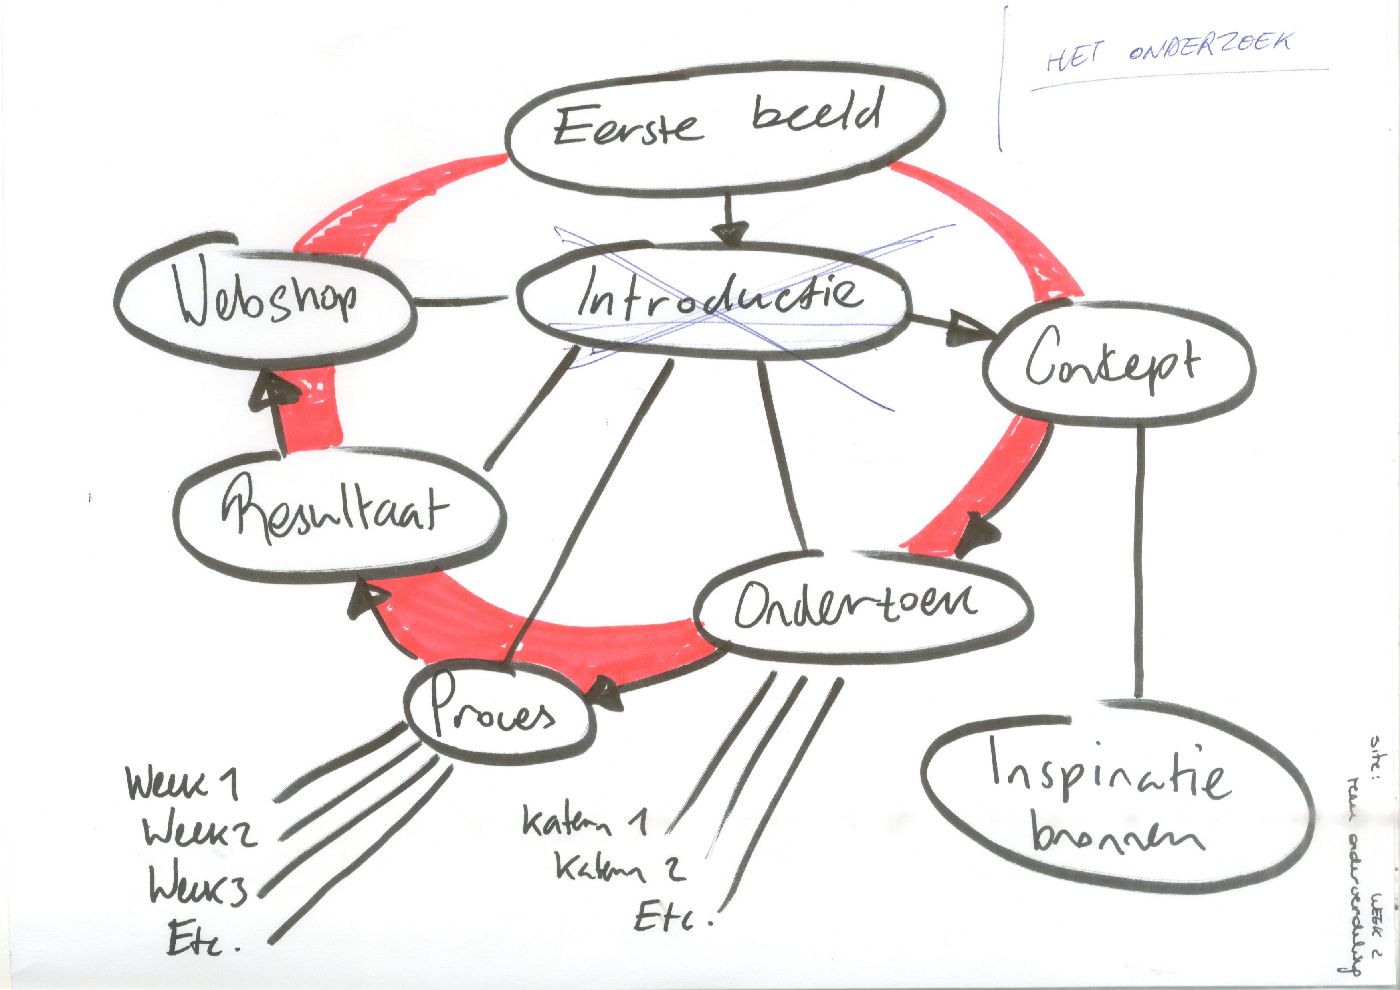 HET ONDERZOEK
Eerste beeld
Webshop
Introductie
Concept
Resultaat
Onderzoek
Proces
Inspiratie
bronnen
Week 1
Week 2
Week 3
Etc.
Katern 1
Katern 2
Etc.
WEEK 2
site:
onderverdeling